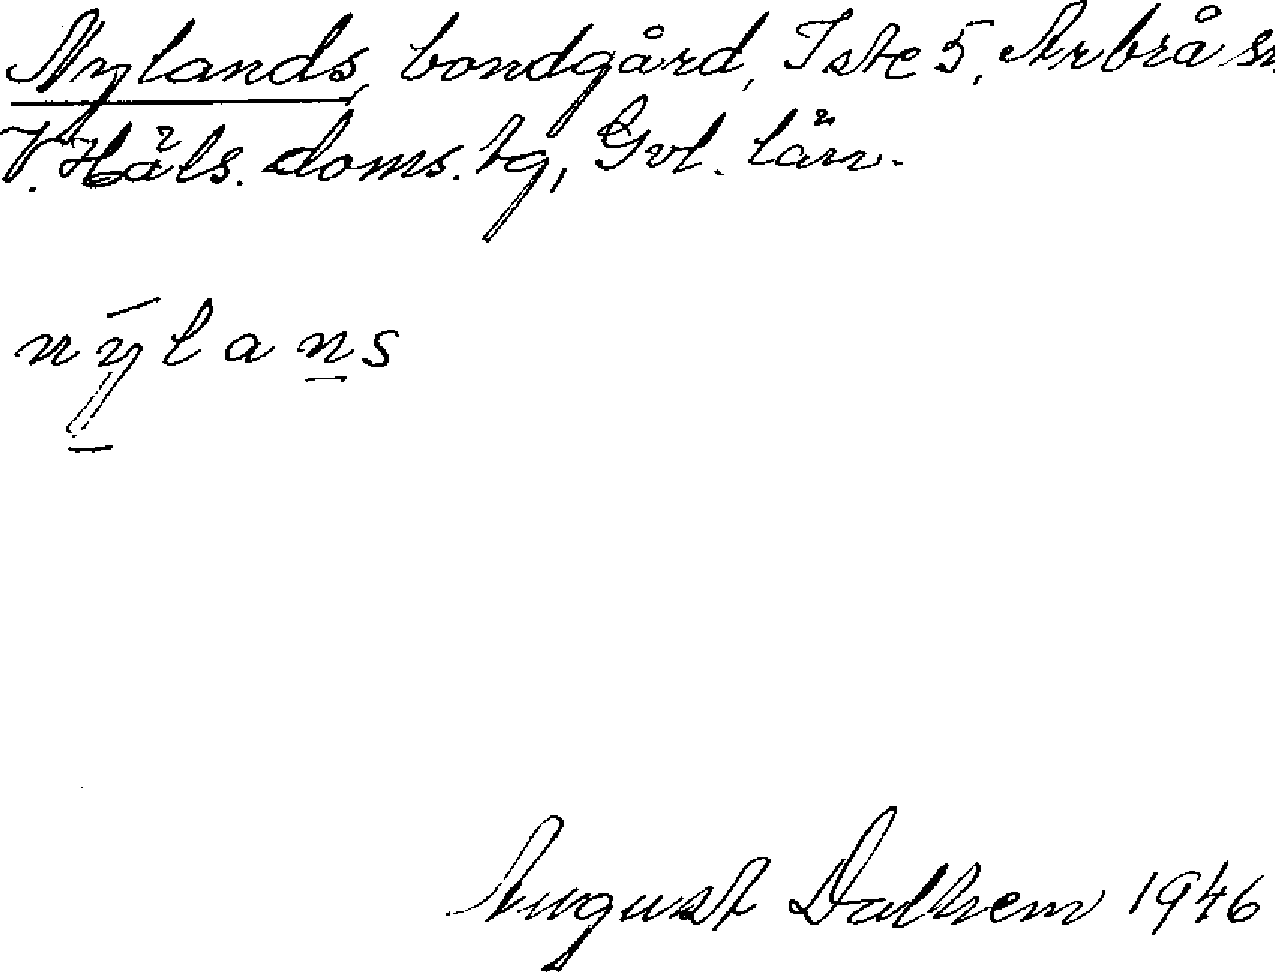 Nylands, bondgård, Iste 5, Arbrå sn
V. Häls. doms. tg, Gvl. län.
nýlans
August Dalhem 1946